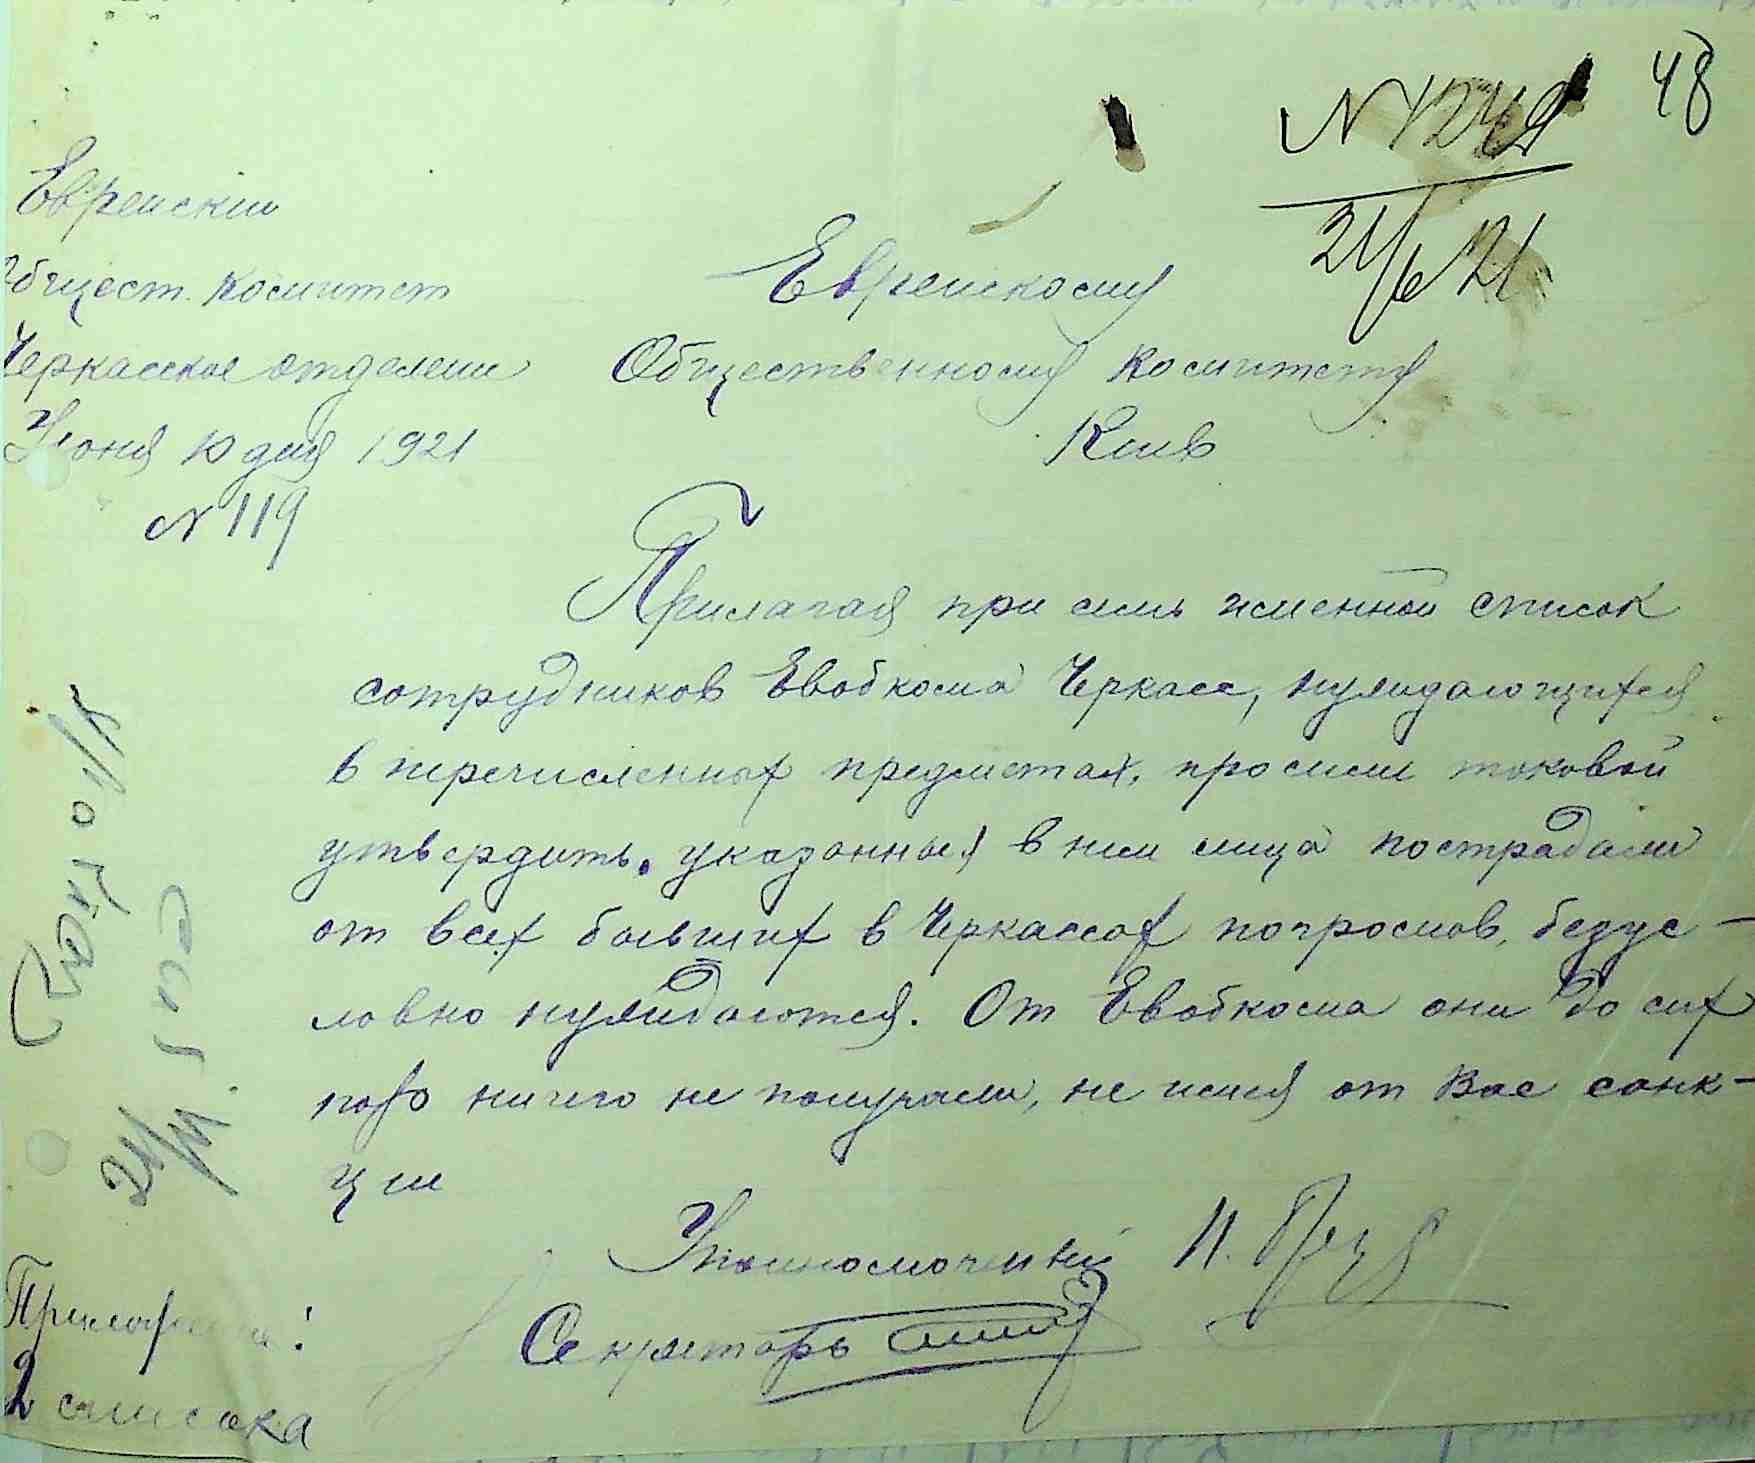 48
N 4249
21/6 21
Еврейский
Общест. Комитет
Черкасское отделени
Июня 10 дня 1921
N 119
Еврейскому
Общественному Комитету
Киев
Прилагая при сем именной список
сотрудников Евобкома Черкасс, нуждающихся
в перечисленных предметах, просим таковой
утвердить. указанные в нем лица пострадали
от всех бывших в Черкассах погромов, безус-
ловно нуждаются. От Евобкома они до сих
пор ничего не получали, не имея от Вас санк-
ции
Уполномоченный И.
Секретарь
Приложение:
2 списка
21/VI